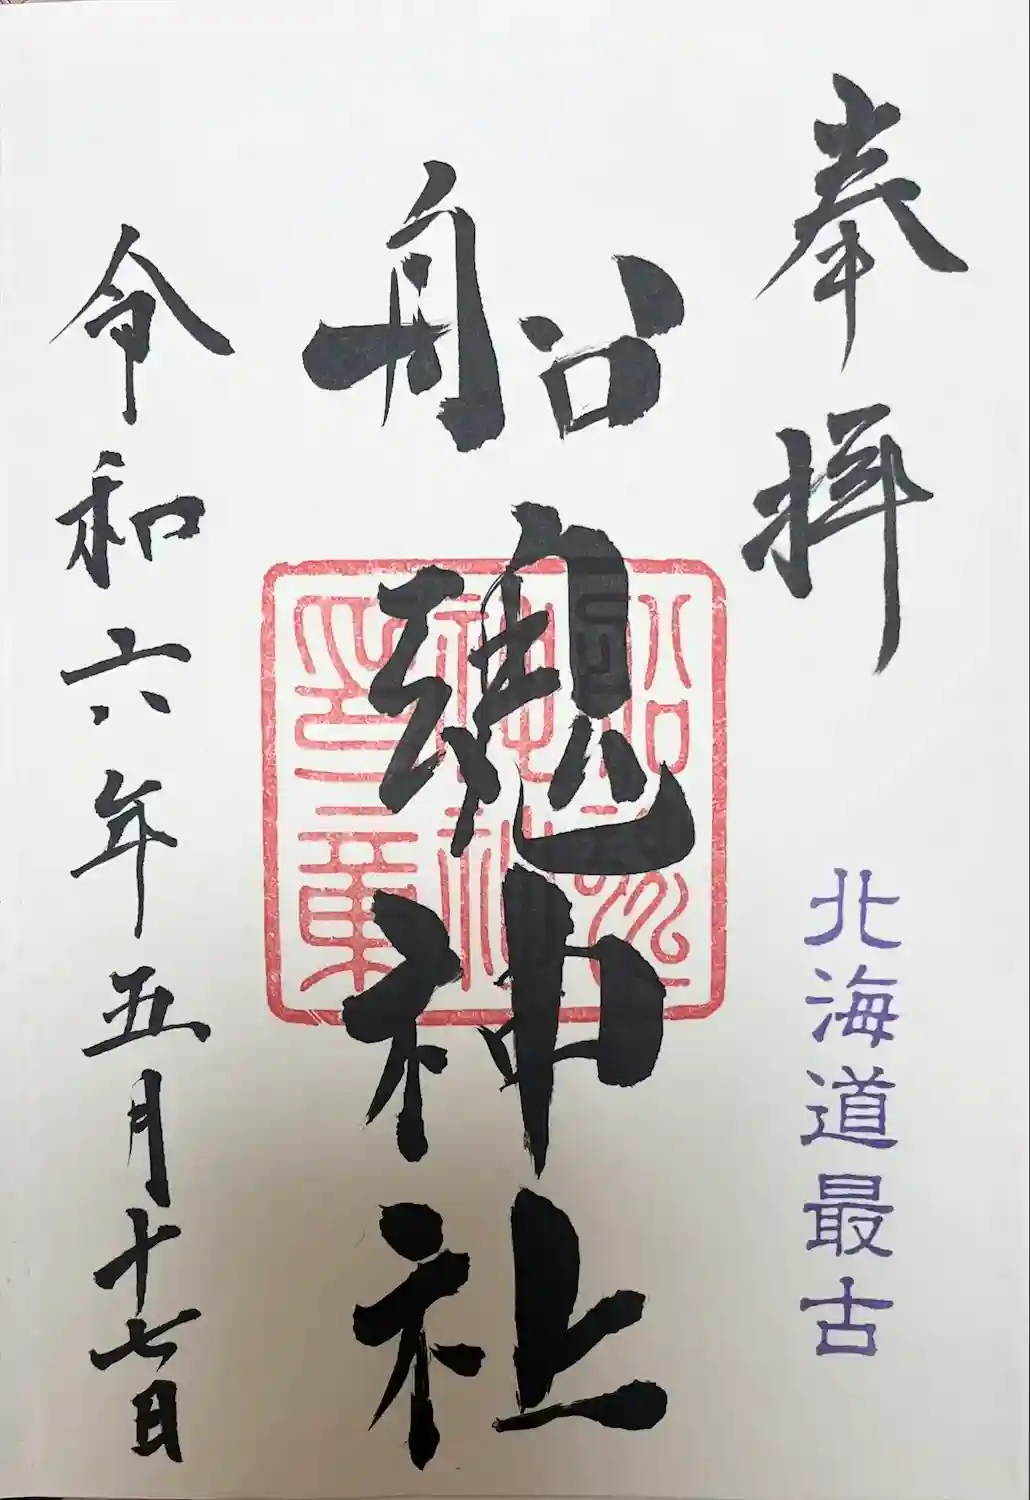 奉拝
北海道最古
船魂神社
船魂神社印章
令和六年五月十七日